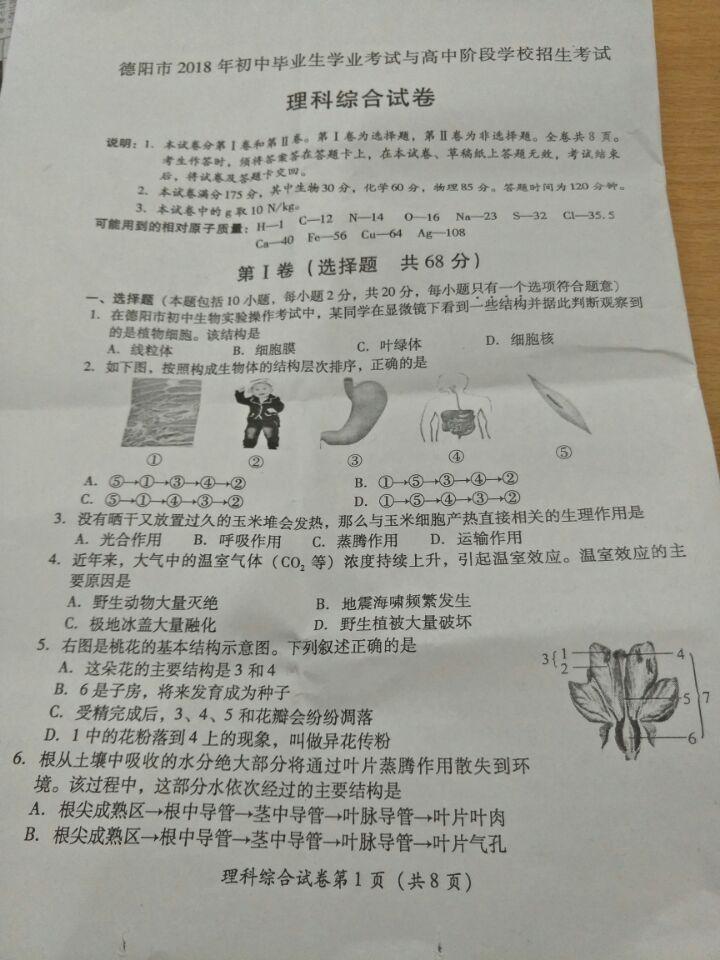 德阳市 2018 年初中毕业生学业考试与高中阶段学校招生考试
理科综合试卷
说明：1. 本试卷分第Ⅰ卷和第Ⅱ卷。第Ⅰ卷为选择题，第Ⅱ卷为非选择题。全卷共 8 页。
考生作答时，须将答案答在答题卡上，在本试卷、草稿纸上答题无效，考试结束
后，将试卷及答题卡交回。
2. 本试卷满分 175 分，其中生物 30 分，化学 60 分，物理 85 分。答题时间为 120 分钟。
3. 本试卷中的 g 取 10 N/kg。
可能用到的相对原子质量：H—1 C—12 N—14 O—16 Na—23 S—32 Cl—35.5
Ca—40 Fe—56 Cu—64 Ag—108
第Ⅰ卷（选择题 共 68 分）
一、选择题（本题包括 10 小题，每小题 2 分，共 20 分，每小题只有一个选项符合题意）
1. 在德阳市初中生物实验操作考试中，某同学在显微镜下看到一些结构并据此判断观察到
的是植物细胞。该结构是
A. 线粒体 B. 细胞膜 C. 叶绿体 D. 细胞核
2. 如下图，按照构成生物体的结构层次排序，正确的是
① ② ③ ④ ⑤
A. ⑤→①→③→④→② B. ①→⑤→③→④→②
C. ⑤→①→④→③→② D. ①→⑤→④→③→②
3. 没有晒干又放置过久的玉米堆会发热，那么与玉米细胞产热直接相关的生理作用是
A. 光合作用 B. 呼吸作用 C. 蒸腾作用 D. 运输作用
4. 近年来，大气中的温室气体（CO₂ 等）浓度持续上升，引起温室效应。温室效应的主
要原因是
A. 野生动物大量灭绝 B. 地震海啸频繁发生
C. 极地冰盖大量融化 D. 野生植被大量破坏
5. 右图是桃花的基本结构示意图。下列叙述正确的是
A. 这朵花的主要结构是 3 和 4
B. 6 是子房，将来发育成为种子
C. 受精完成后，3、4、5 和花瓣会纷纷凋落
D. 1 中的花粉落到 4 上的现象，叫做异花传粉
3{1 4
2
5 7
6
6. 根从土壤中吸收的水分绝大部分将通过叶片蒸腾作用散失到环
境。该过程中，这部分水依次经过的主要结构是
A. 根尖成熟区→根中导管→茎中导管→叶脉导管→叶片叶肉
B. 根尖成熟区→根中导管→茎中导管→叶脉导管→叶片气孔
理科综合试卷第 1 页（共 8 页）